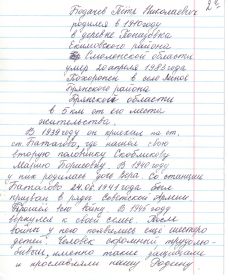 2
Петя Николаевич
родился в 1910 году
в деревне
Екимовского района
Смоленской области
умер 20 апреля 1978 года
Похоронен в селе
Брянского района
Брянской области
в 5 км от его места
жительства.
В 1939 году он приехал на ст.
ст. Батагово, где нашел свою
вторую половинку
Марию Борисовну. В 1940 году
у них родилась дочь Вера. Со станции
Батагово 24.06.1941 года был
призван в ряды Советской Армии.
Прошел всю войну. В 1945 году
вернулся к своей семье. После
войны у него появились еще шестеро
детей. Человек скромный трудолю-
бивый, именно такие защищали
и прославляли нашу Родину